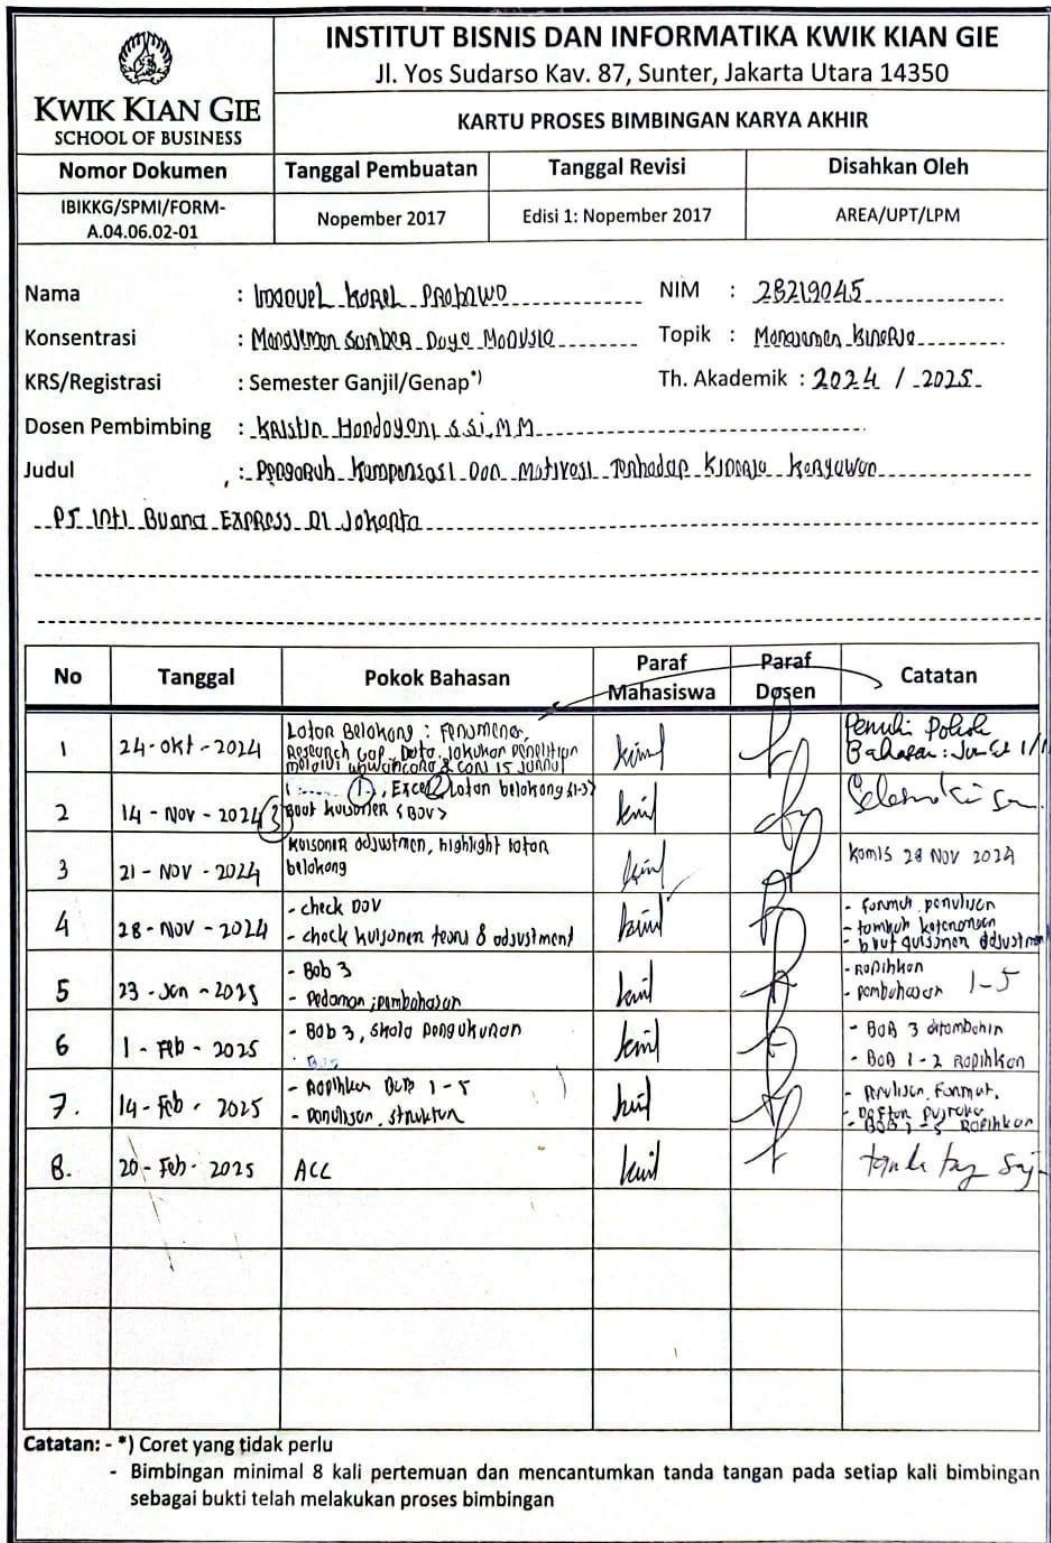 INSTITUT BISNIS DAN INFORMATIKA KWIK KIAN GIE
Jl. Yos Sudarso Kav. 87, Sunter, Jakarta Utara 14350
KWIK KIAN GIE
SCHOOL OF BUSINESS
KARTU PROSES BIMBINGAN KARYA AKHIR
Nomor Dokumen Tanggal Pembuatan Tanggal Revisi Disahkan Oleh
IBIKKG/SPMI/FORM-
A.04.06.02-01
Nopember 2017 Edisi 1: Nopember 2017 AREA/UPT/LPM
Nama : Imanuel Karel Prabowo NIM : 28219045
Konsentrasi : Manajemen Sumber Daya Manusia Topik : Manajemen Kinerja
KRS/Registrasi : Semester Ganjil/Genap*) Th. Akademik : 2024 / 2025
Dosen Pembimbing : Kristin Handayani S.Si, M.M
Judul : Pengaruh Kompensasi Dan Motivasi Terhadap Kinerja Karyawan
PT Inti Buana Express Di Jakarta
No Tanggal Pokok Bahasan Paraf Mahasiswa Paraf Dosen Catatan
1 24-Okt-2024 Latar Belakang : Fenomena,
Research Gap, Data, lakukan penelitian
melalui wawancara & cari 15 jurnal
Penuhi Pokok
Bahasan:
2 14-Nov-2024 (1), Excel (2) Latar belakang (1-3)
(3) Buat kuisoner <BOV>
3 21-Nov-2024 kuisoner adjustmen, highlight latar
belakang
Kamis 28 Nov 2024
4 28-Nov-2024 - check DOV
- check kuisoner teori & adjustment
- format penulisan
- adjustmen
5 23-Jan-2025 - Bab 3
- Pedoman ; pembahasan
- Rapihkan
- pembahasan 1-5
6 1-Feb-2025 - Bab 3, skala pengukuran
- BAB 3 ditambahin
- BAB 1-2 Rapihkan
7. 14-Feb-2025 - Rapihkan BAB 1-5
- penulisan, struktur
- Penulisan, Format,
- Daftar Pustaka
- BAB 1-5 Rapihkan
8. 20-Feb-2025 ACC
Catatan: - *) Coret yang tidak perlu
- Bimbingan minimal 8 kali pertemuan dan mencantumkan tanda tangan pada setiap kali bimbingan
sebagai bukti telah melakukan proses bimbingan